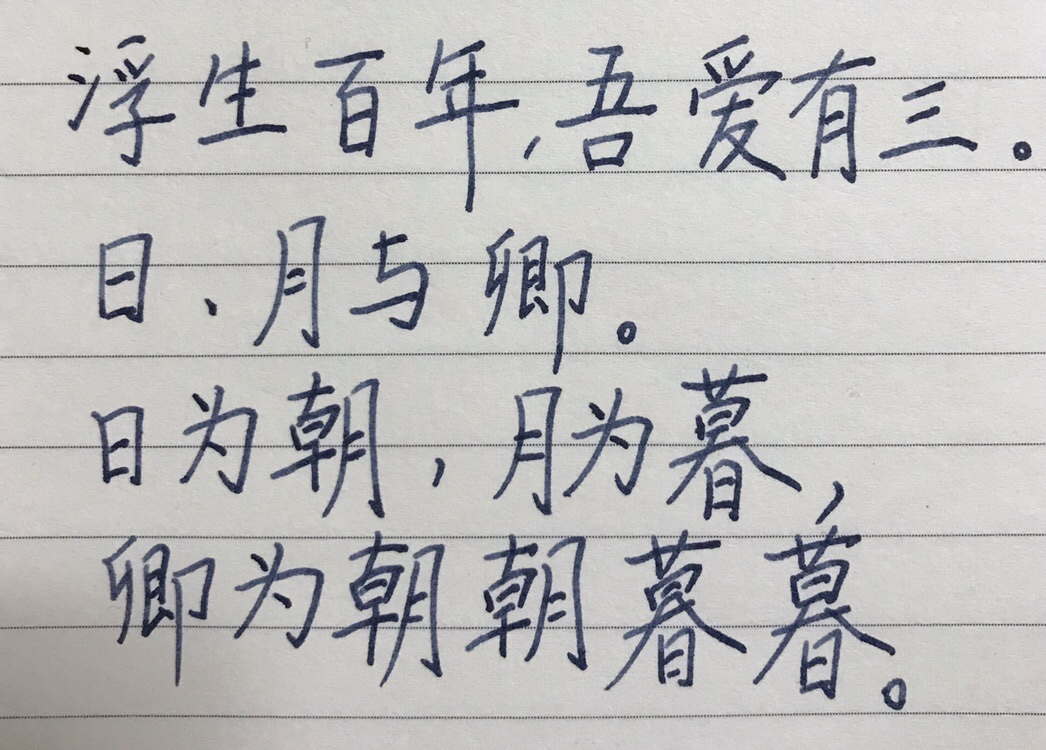 浮生百年,吾爱有三。
日、月与卿。
日为朝,月为暮,
卿为朝朝暮暮。